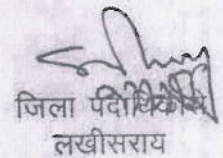 जिला पदाधिकारी
लखीसराय